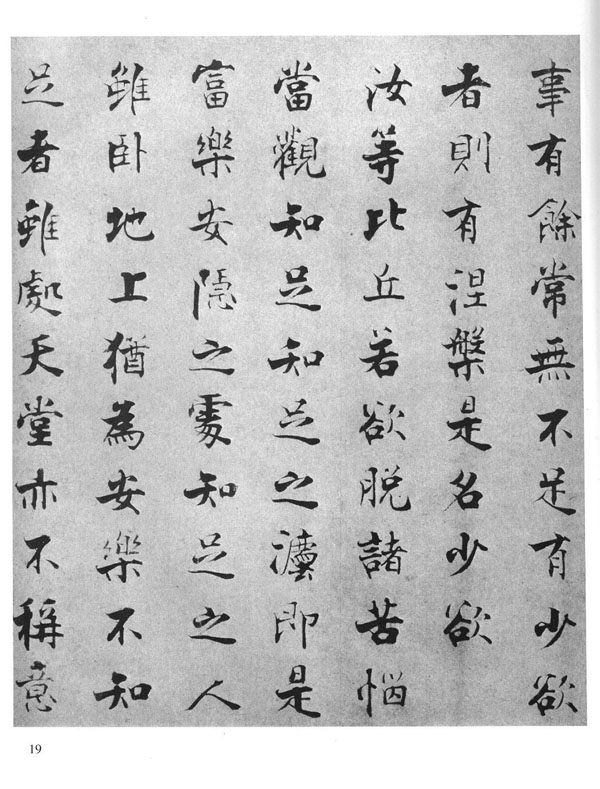 事有餘常無不足有少欲
者則有涅槃是名少欲
汝等比丘若欲脱諸苦惱
當觀知足知足之灋即是
富樂安隱之處知足之人
雖卧地上猶為安樂不知
足者雖處天堂亦不稱意
19